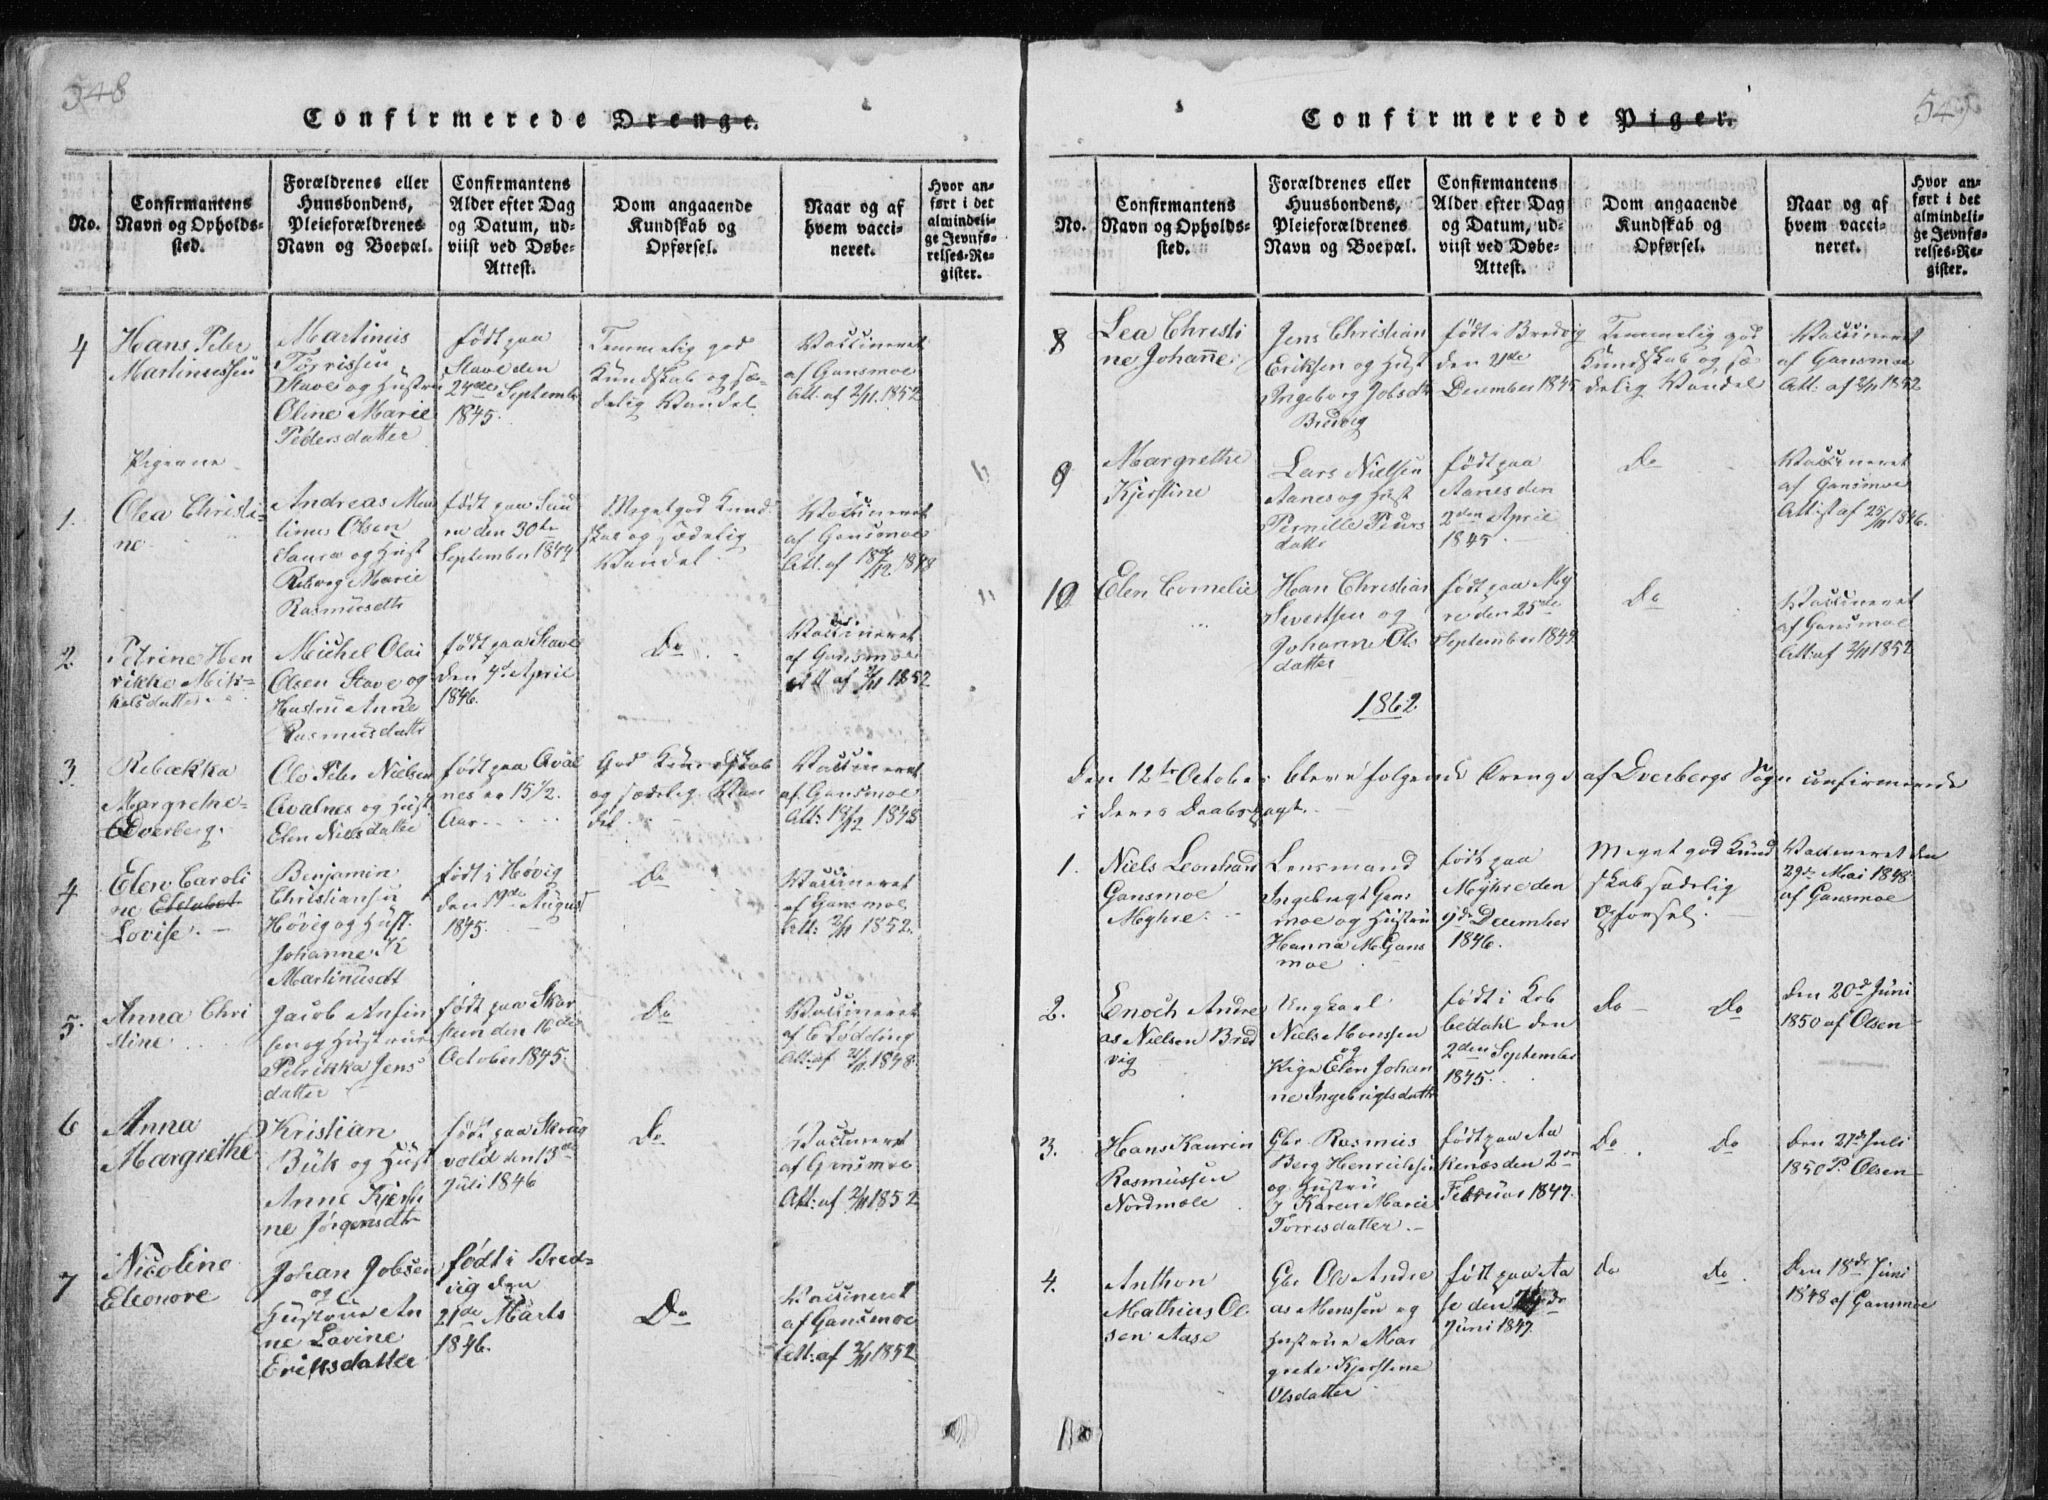 548
Confirmerede Drenge.
No.
Confirmantens
Navn og Opholds-
sted.
Forældrenes eller
Huusbondens,
Pleieforældrenes
Navn og Boepæl.
Confirmantens
Alder efter Dag
og Datum, ud-
viist ved Døbe-
Attest.
Dom angaaende
Kundskab og
Opførsel.
Naar og af
hvem vacci-
neret.
Hvor an-
ført i det
almindeli-
ge Jevnfø-
relses-Re-
gister.
4
Hans Peter
Martinussen
Martinus
Torrissen
Stave og Hustru
Oline Marie
Pedersdatter
født paa
Stave den
24de September
1845.
Temmelig god
Kundskab og sæ-
delig Vandel
Vaccineret
af Gansmoe
Att: af 2/11 1852
Pigerne
1.
Olea Christi-
ne
Andreas Mar
tinus Olsen
og Hust
Marie
Rasmusdtr
født paa
den 30te
September 1844
Meget god Kund
skab og sædelig
Vandel
Vaccineret
af Gansmoe
Att. af 18/12 1848
2.
Petrine Hen
rikke Mik-
kelsdatter
Michel Olai
Olsen Stave og
Hustru Anne
Rasmusdattr
født paa Stave
den 4de April
1846.
Do
Vaccineret
af Gansmoe
Att af 2/11 1852
3.
Rebækka
Margrethe
Dverberg.
Ole Peter Nielsen
Avalnes og Hust
Elen Nielsdatter
født paa Aval
nes er 15 1/2
Aar
God Kundskab
og sædelig Van
del
Vaccineret
af Gansmoe
Att: 1848
4
Elen Caroli
ne Elisabet
Lovise.
Benjamin
Christiansen
Høvig og Hust.
Johanne K
Martinusdt
født i Høvig
den 19de August
1845.
Do
Vaccineret
af Gansmoe
Att: 2/11 1852.
5.
Anna Chri
stine
Jacob Anfin
sen og Hustrue
Petrikka Jens
datter
født paa Skar
sten den 16de
October 1845.
Do
Vaccineret
af E Lodding
Att: af 2/11 1848.
6
Anna
Margrethe
Kristian
Bük og Hust
Anne Kjersti
ne Jørgensdtr
født paa Skrog
vold den 13de
Juli 1846
Do
Vaccineret
af Gansmoe
Att: af 2/11 1852
7
Nicoline
Eleonore
Johan Jobsen
og
Hustrue An
ne Lavine
Eriksdatter
født i Bred-
vig den
21de Marts
1846.
Do
Vaccineret
af Gansmoe
Att: af 2/11 1852
549
Confirmerede Piger.
No.
Confirmantens
Navn og Opholds-
sted.
Forældrenes eller
Huusbondens,
Pleieforældrenes
Navn og Boepæl.
Confirmantens
Alder efter Dag
og Datum, ud-
viist ved Døbe-
Attest.
Dom angaaende
Kundskab og
Opførsel.
Naar og af
hvem vacci-
neret.
Hvor an-
ført i det
almindeli-
ge Jevnfø-
relses-Re-
gister.
8
Lea Christi
ne Johanne
Jens Christian
Eriksen og Hust
Ingeborg Jobsdtr
Bredvig
født i Bredvig
den
December 1845
Temmelig god
Kundskab og sæ
delig Vandel
Vaccineret
af Gansmoe
Att: af 2/11 1852
9
Margrethe
Kjerstine
Lars Nielsen
Aanes og Hust
Pernille Peters
datter
født paa
Aanes den
2den April
1845.
Do
Vaccineret
af Gansmoe
Attest af 25/11 1846.
10
Elen Cornelie
Han Christian
Sivertsen og
Johanne Ols
datter
født paa My
re den 25de
September 1844
Do
Vaccineret
af Gansmoe
Att: af 2/11 1852
1862.
Den 12te October bleve følgende Drenge af Dverbergs Sogn confirmerede
i deres Daabspagt.
1.
Niels Leonhard
Gansmoe
Myhre.
Lensmand
Ingebrigt Gans
moe og Hustru
Hanna M Gans
moe
født paa
Myhre den
9de December
1846.
Meget god Kund
skab sædelig
Opførsel.
Vaccineret den
29de Mai 1848
af Gansmoe
2.
Enoch Andre
as Nielsen Bred
vig
Ungkarl
Niels Monssen
og
Pige Elen Johan
ne Ingebrigtsdattr
født i Kob
bedahl den
2den September
1845.
Do Do
Den 20de Juni
1850 af Olsen
3.
Hans Kaurin
Rasmussen
Nordmele
Gbr Rasmus
Berg Henriksen
og Hustru
Karen Marie
Torrisdatter.
født paa Aa
kenæs den 2den
Februar 1847.
Do Do
Den 27de Juli
1850 P. Olsen
4.
Anthon
Mathias Ol
sen Aase
Gbr Ole Andre
as Monssen og
Hustrue Mar
grete Kjerstine
Olsdatter
født paa Aa
se den
Juni 1847.
Do Do
Den 18de Juni
1848 af Gansmoe